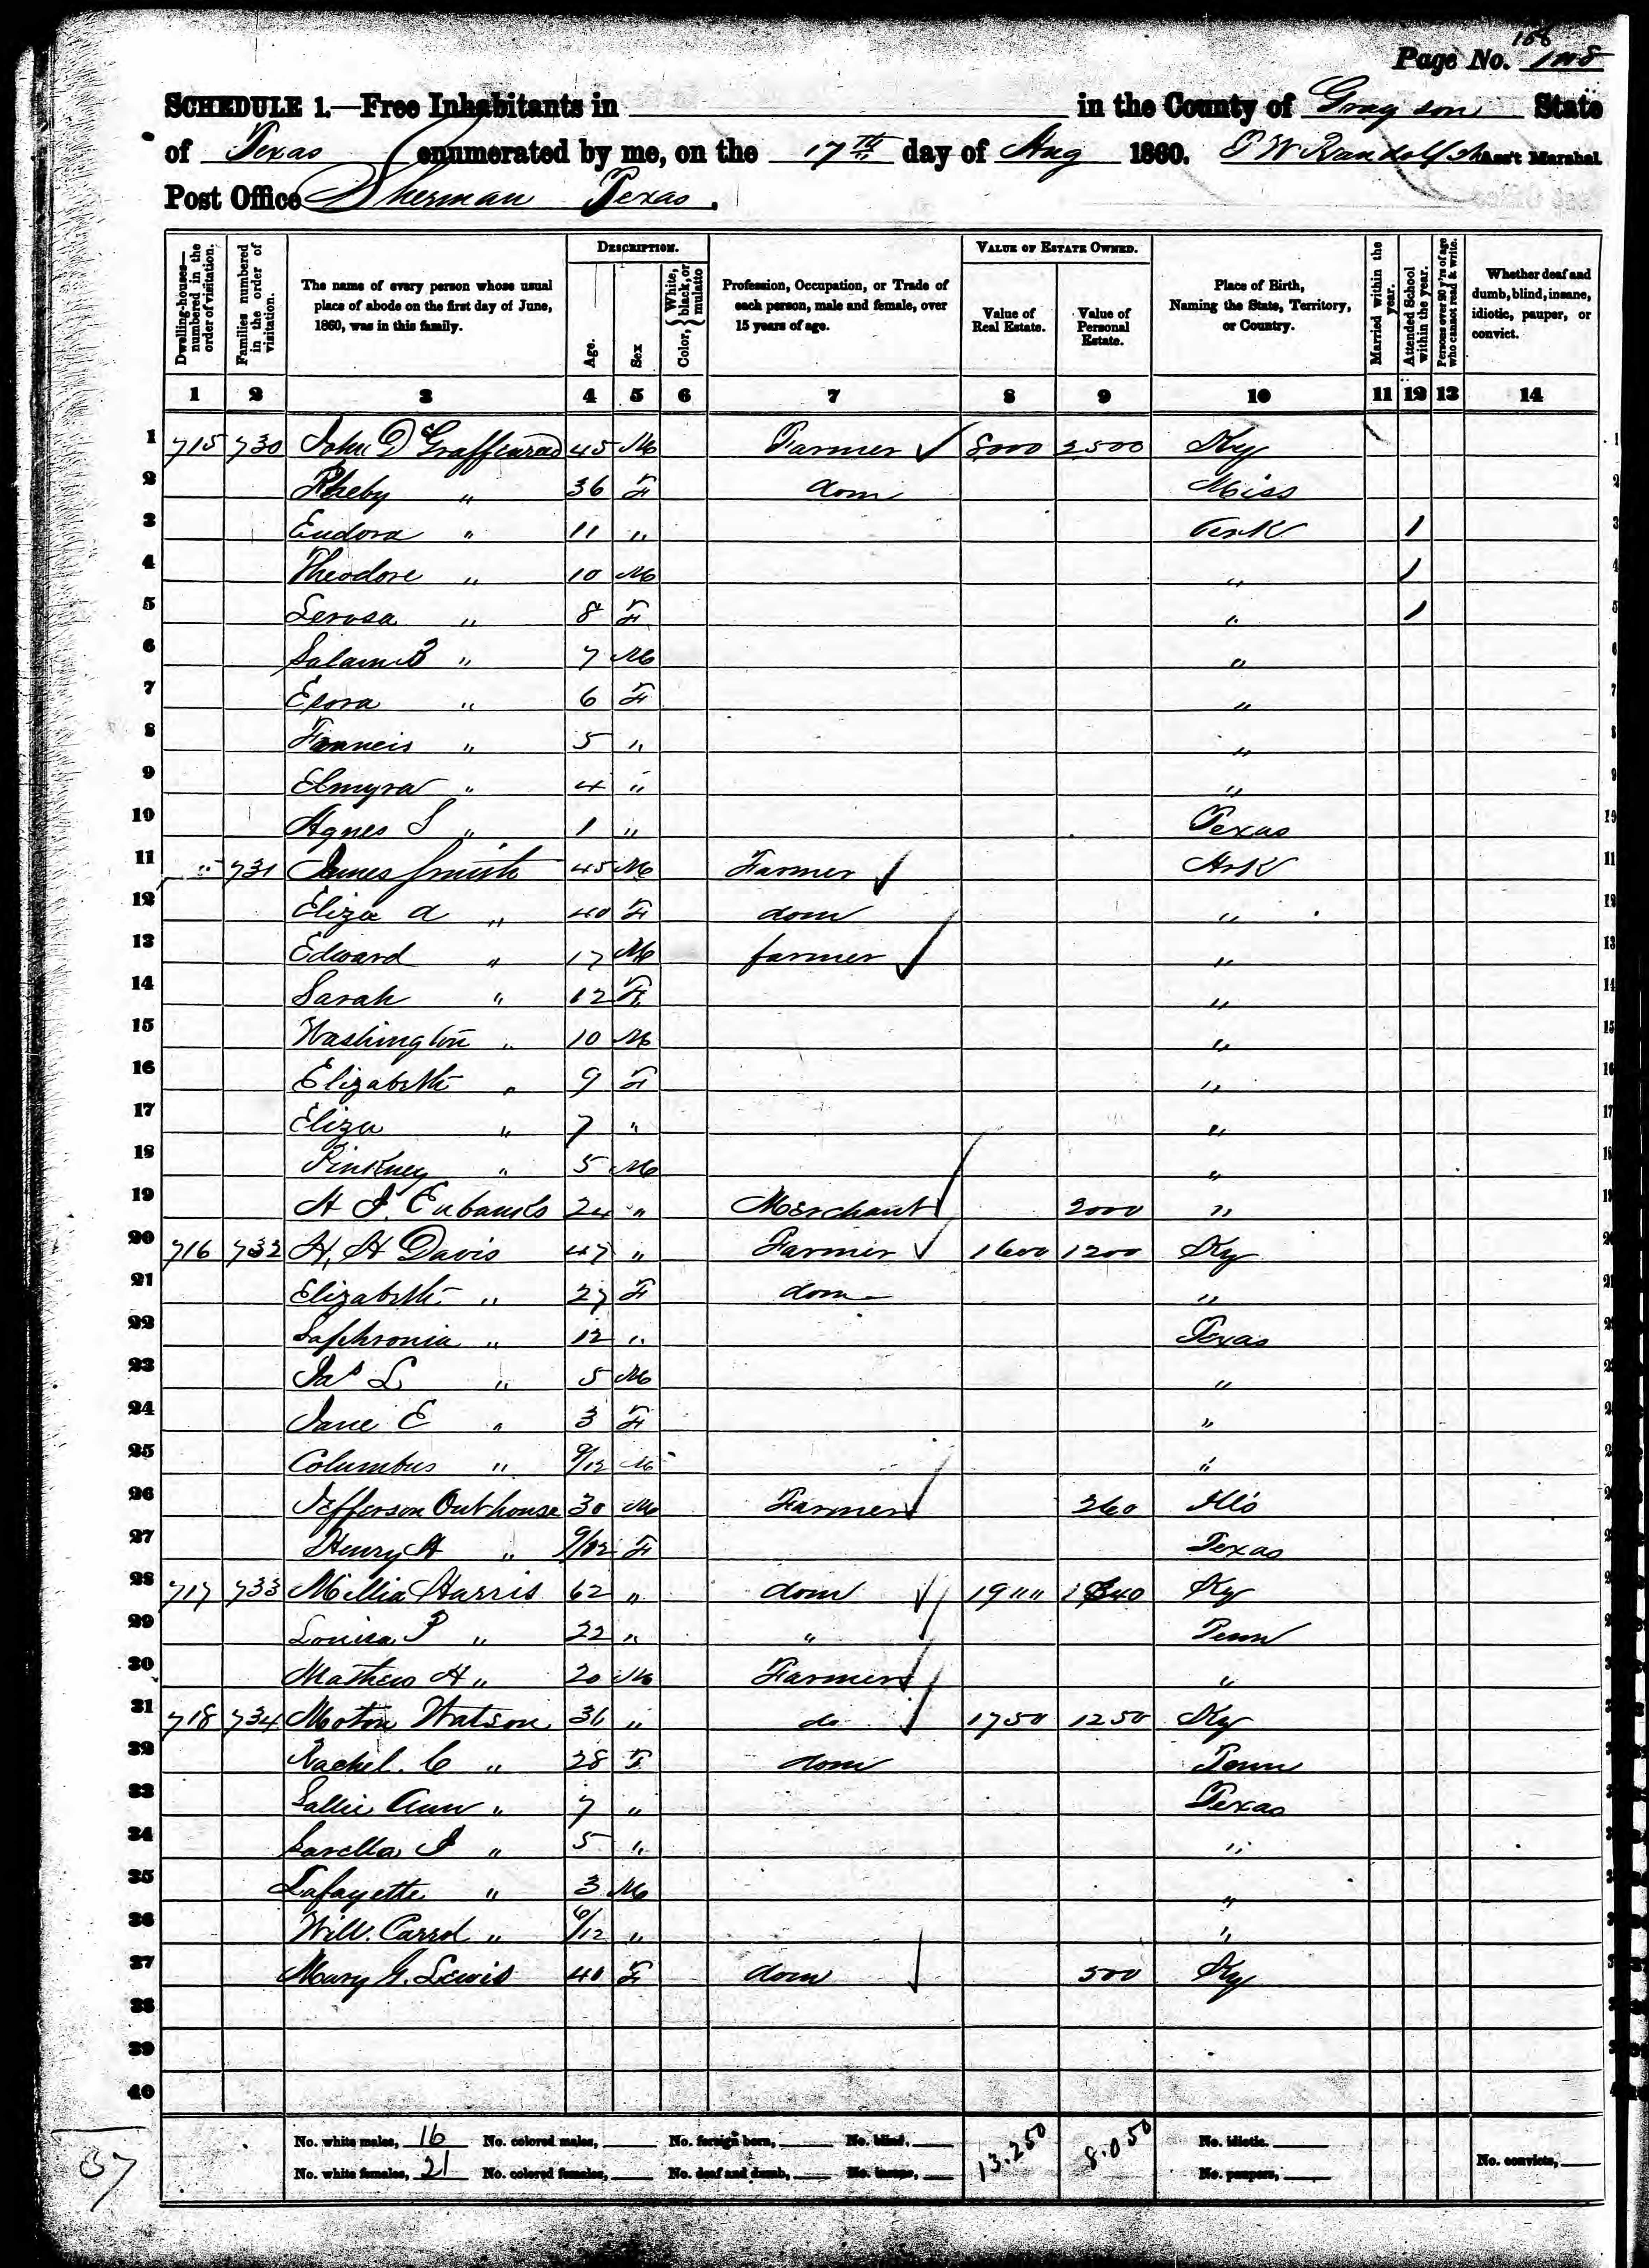 Page No. 108
SCHEDULE 1.—Free Inhabitants in in the County of Grayson State
of Texas enumerated by me, on the 17th day of Aug 1860. Ass't Marshal.
Post Office Sherman Texas.
Dwelling-houses—numbered in the order of visitation. Families numbered in the order of visitation. The name of every person whose usual place of abode on the first day of June, 1860, was in this family. DESCRIPTION. Age. Sex Color, White, black, or mulatto Profession, Occupation, or Trade of each person, male and female, over 15 years of age. VALUE OF ESTATE OWNED. Value of Real Estate. Value of Personal Estate. Place of Birth, Naming the State, Territory, or Country. Married within the year. Attended School within the year. Persons over 20 y'rs of age who cannot read & write. Whether deaf and dumb, blind, insane, idiotic, pauper, or convict.
1 2 3 4 5 6 7 8 9 10 11 12 13 14
1 715 730 John D Graffenrad 45 M Farmer 8000 2500 Ky 1
2 Pheby " 36 F dom Miss 2
3 Eudora " 11 " Ark 1 3
4 Theodore " 10 M " 1 4
5 Lerosa " 8 F " 1 5
6 " 7 M " 6
7 Elora " 6 F " 7
8 Francis " 5 " " 8
9 Elmyra " 4 " " 9
10 Agnes S " 1 " Texas 10
11 " 731 James Smith 45 M Farmer Ark 11
12 Eliza A " 40 F dom " 12
13 Edward " 17 M farmer " 13
14 Sarah " 12 F " 14
15 Washington " 10 M " 15
16 Elizabeth " 9 F " 16
17 Eliza " 7 " " 17
18 Pinkney " 5 M "
19 H J Eubanks 24 " Merchant 2000 "
20 716 732 H. H Davis 47 " Farmer 1600 1200 Ky
21 Elizabeth " 27 F dom "
22 Saphronia " 12 " Texas
23 Jas L " 5 M "
24 Jane E " 3 F "
25 Columbus " 9/12 M "
26 Jefferson Outhouse 30 M Farmer 260 Ills
27 Henry A " 9/12 F Texas
28 717 733 Millia Harris 62 " dom 19"" Ky
29 Louisa P " 22 " " Tenn
30 Mathew H " 20 M Farmer "
31 718 734 Moton Watson 31 " do 1750 1250 Ky
32 Rachel C " 28 F dom Tenn
33 Sallie Ann " 7 " Texas
34 Sarella J " 5 " "
35 Lafayette " 3 M "
36 Will. Carrol " 6/12 " "
37 Mary G. Lewis 40 F dom 500 Ky
38
39
40
No. white males, 16 No. colored males, No. foreign born, No. blind, 13.250 8.050 No. idiotic.
No. white females, 21 No. colored females, No. deaf and dumb, No. insane, No. paupers, No. convicts,
37